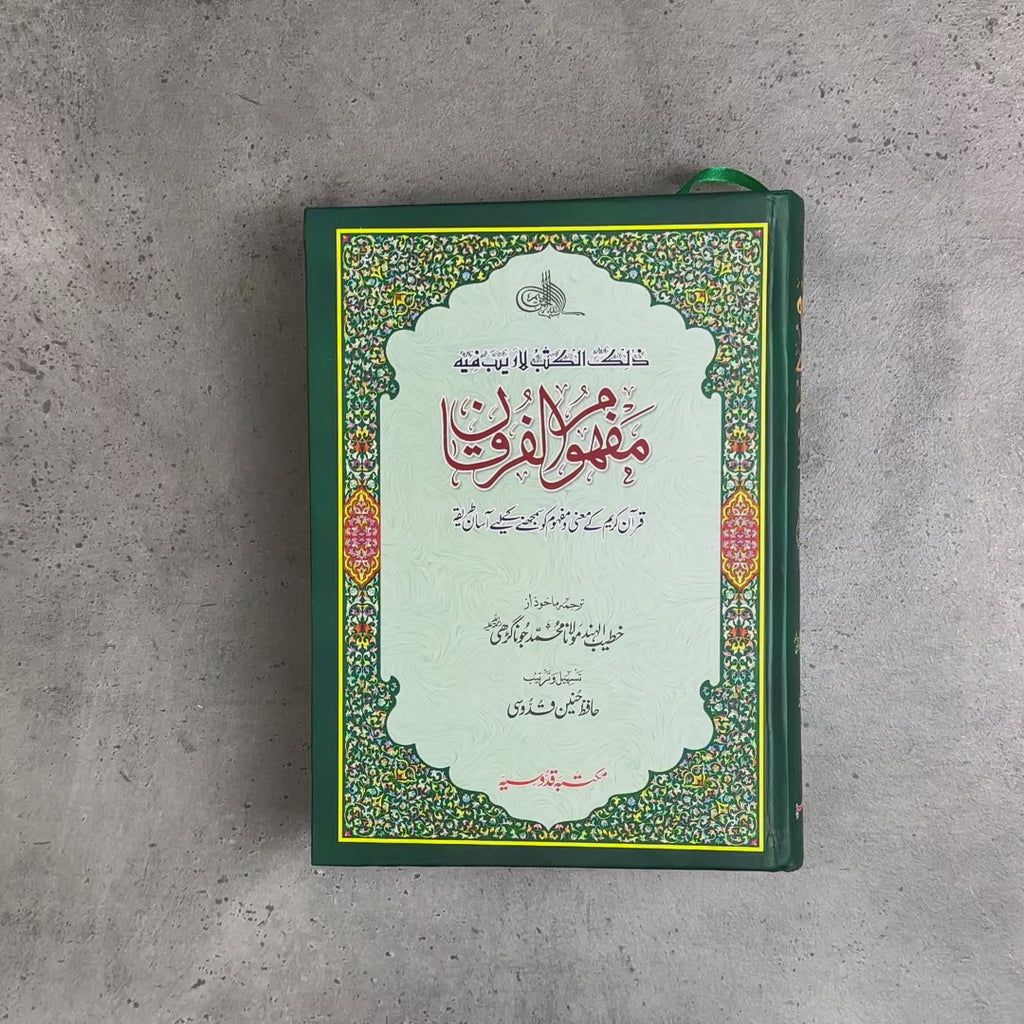 ذلك الكتب لا ريب فيه
مفہوم الفرقان
قرآن کریم کے معنی و مفہوم کو سمجھنے کیلیے آسان طریقہ
ترجمہ ماخوذ از
خطیب الہند مولانا محمد جوناگڑھی
تسہیل و ترتیب
حافظ حنین قدوسی
مکتبہ قدوسیہ